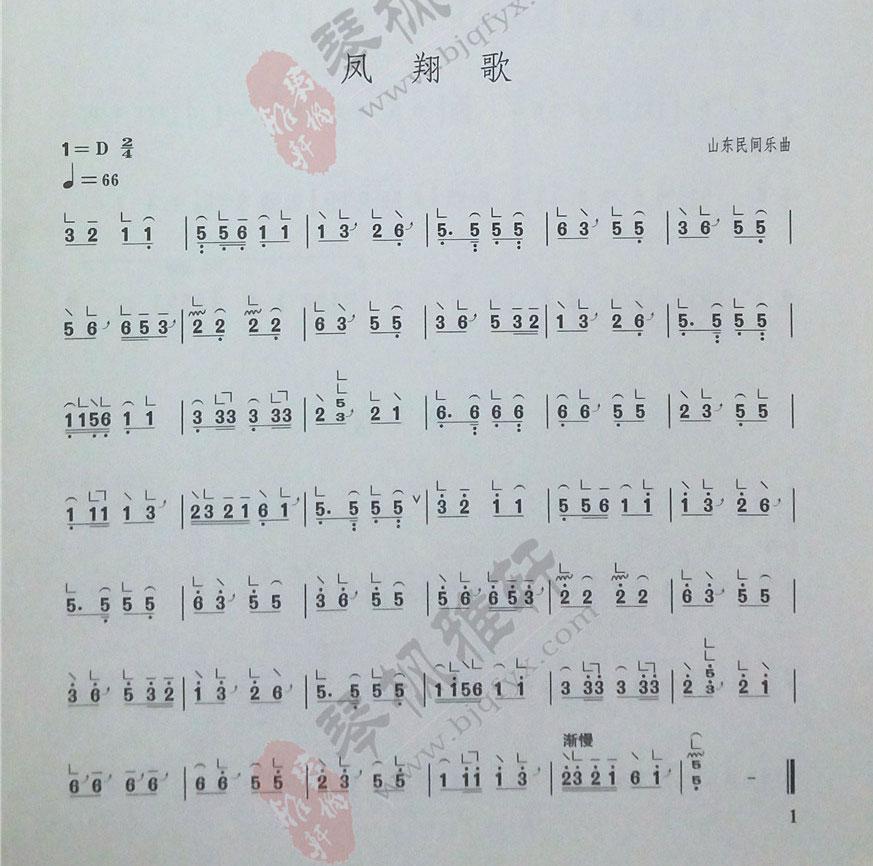 琴枫雅轩
www.bjqfyx.com
凤翔歌
1=D 2/4
山东民间乐曲
♩=66
3 2 1 1 | 5 5 6 1 1 | 1 3 2 6 | 5. 5 5 5 | 6 3 5 5 | 3 6 5 5 |
5 6 6 5 3 | 2 2 2 2 | 6 3 5 5 | 3 6 5 3 2 | 1 3 2 6 | 5. 5 5 5 |
1 1 5 6 1 1 | 3 3 3 3 3 3 | 2 5 3 2 1 | 6. 6 6 6 | 6 6 5 5 | 2 3 5 5 |
1 1 1 1 3 | 2 3 2 1 6 1 | 5. 5 5 5 ∨ | 3 2 1 1 | 5 5 6 1 1 | 1 3 2 6 |
5. 5 5 5 | 6 3 5 5 | 3 6 5 5 | 5 6 6 5 3 | 2 2 2 2 | 6 3 5 5 |
3 6 5 3 2 | 1 3 2 6 | 5. 5 5 5 | 1 1 5 6 1 1 | 3 3 3 3 3 3 | 2 5 3 2 1 |
渐慢
6 6 6 6 | 6 6 5 5 | 2 3 5 5 | 1 1 1 1 3 | 2 3 2 1 6 1 | 5 5 - ‖
琴枫雅轩
www.bjqfyx.com
琴枫雅轩
1